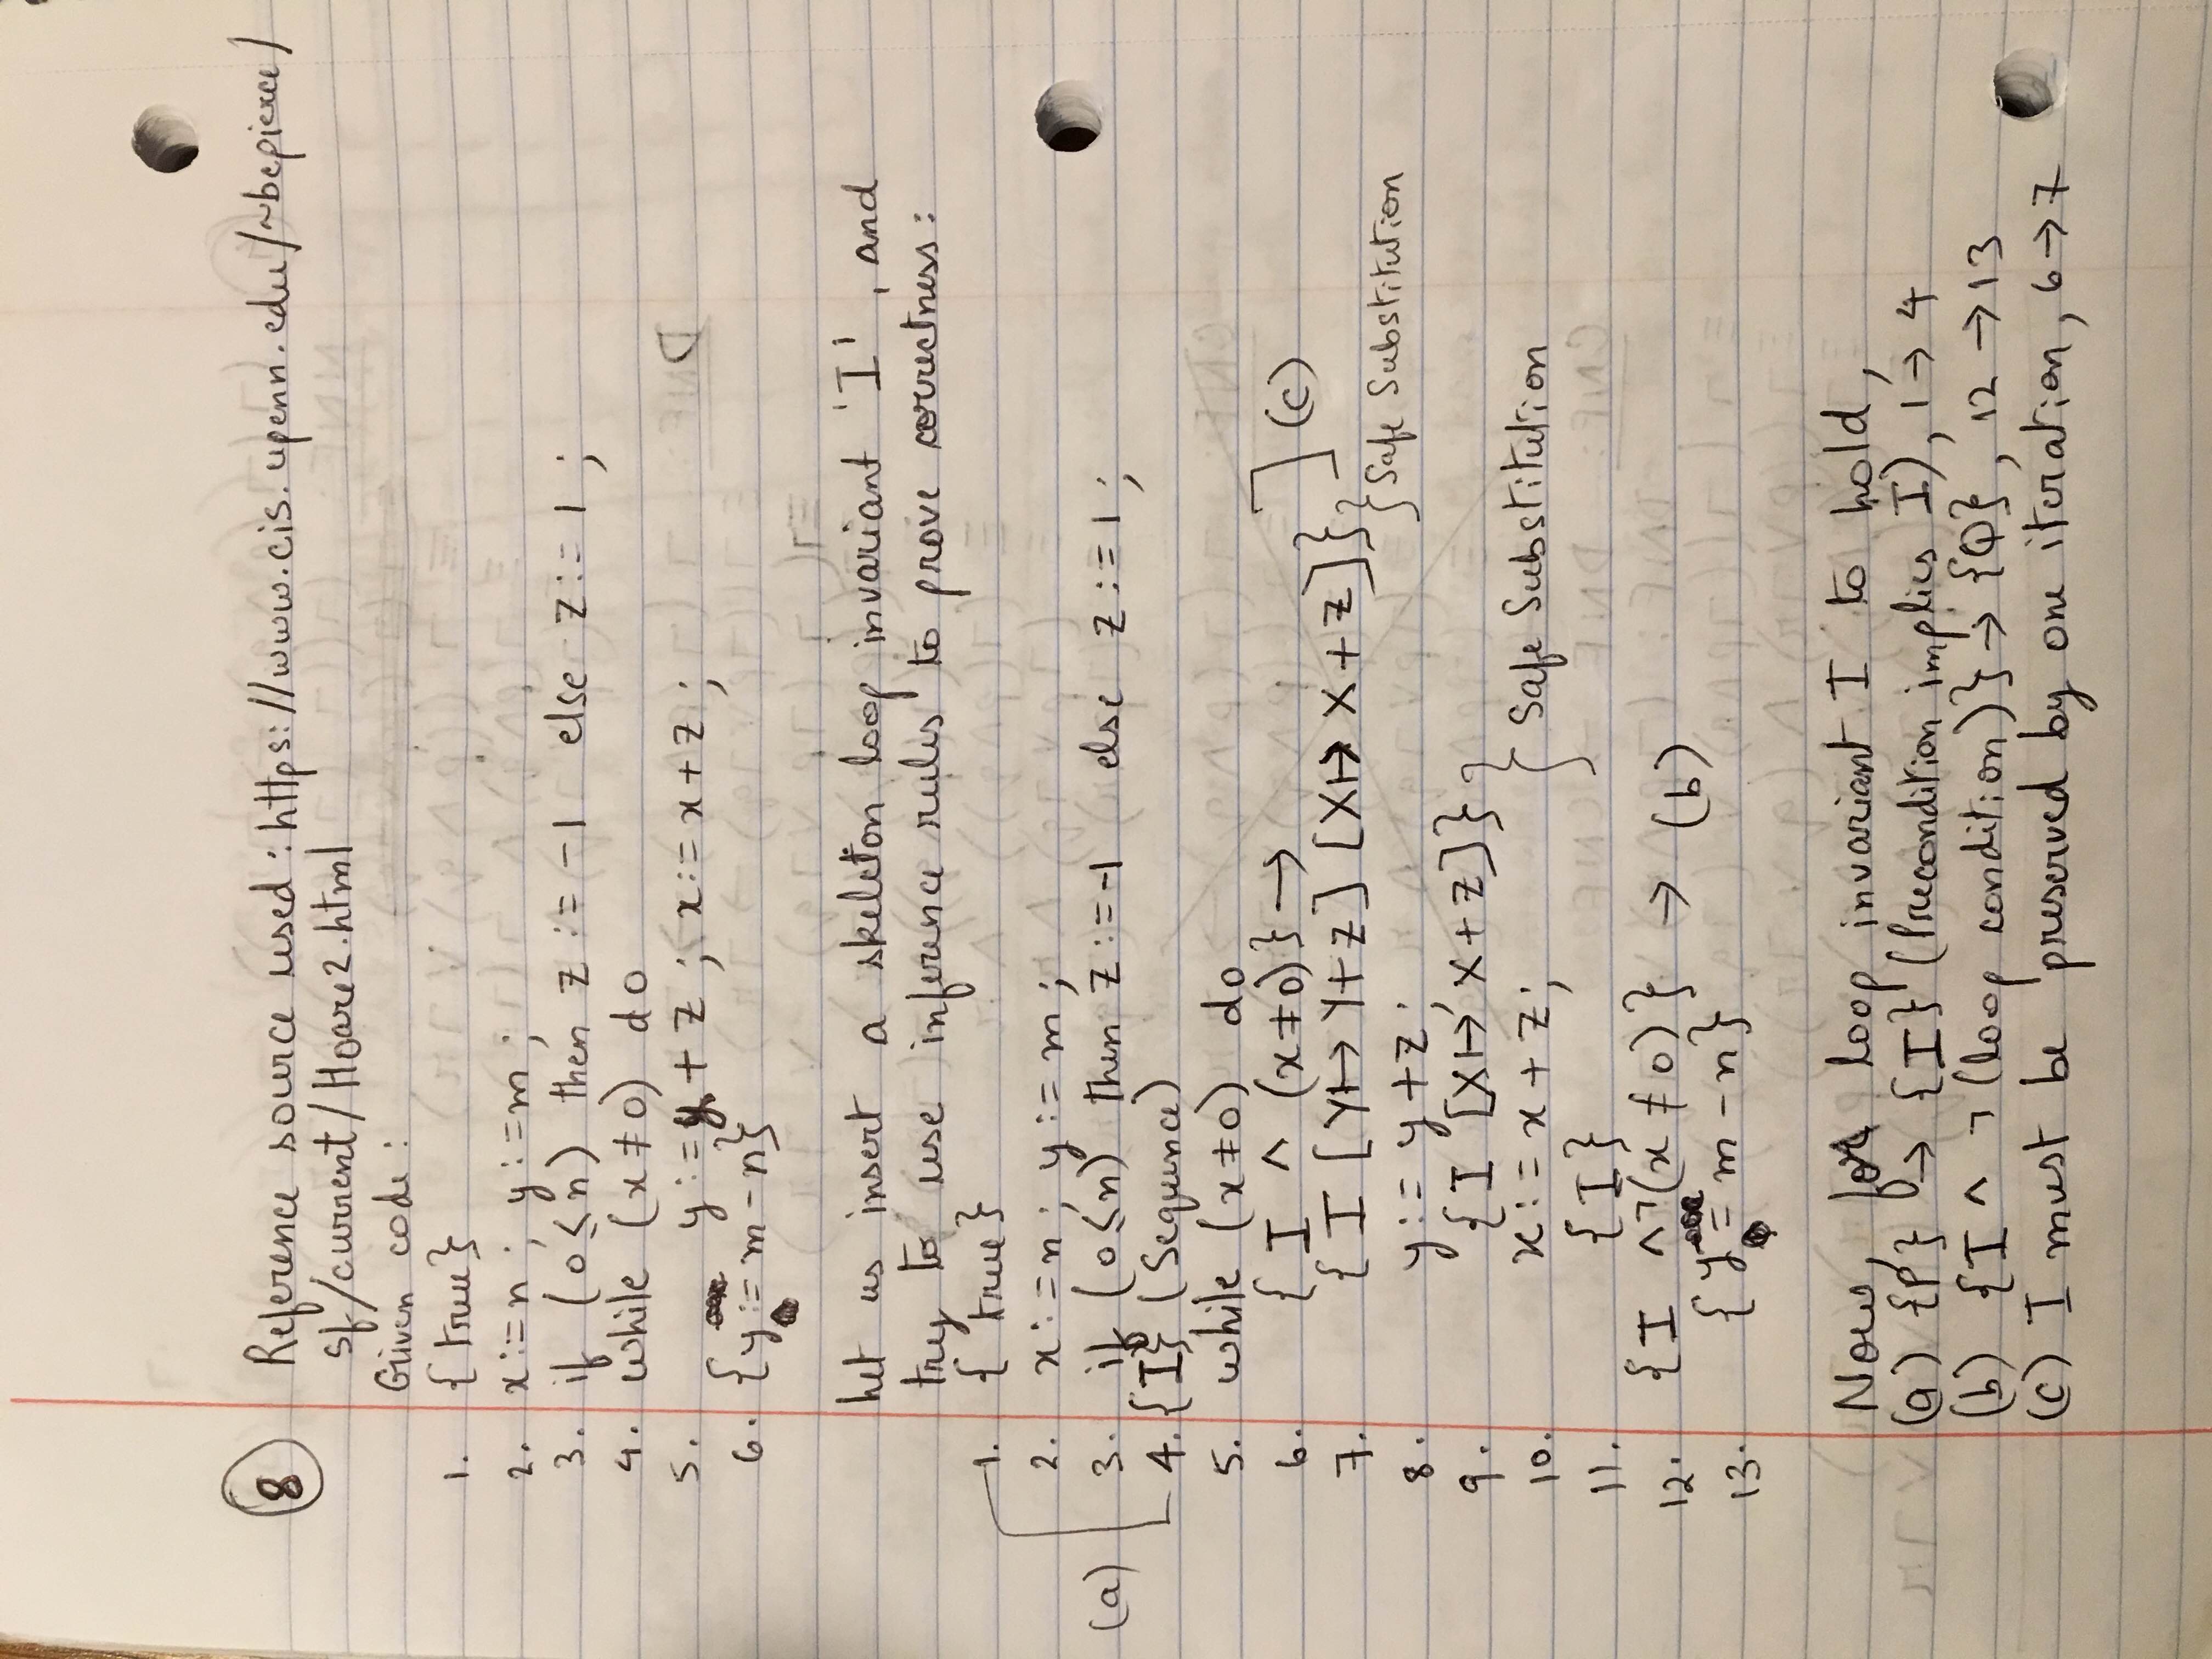 8 Reference source used : https://www.cis.upenn.edu/~bcpierce/
sf/current/Hoare2.html
Given code :
1. { true}
2. x:=n ; y:=m ;
3. if (0≤n) then z := -1 else z:= 1 ;
4. while (x≠0) do
5. y:=y + z ; x:= x+z ;
6. {y = m - n}
Let us insert a skeleton loop invariant 'I' , and
try to use inference rules to prove correctness :
1. { true}
2. x:=n ; y:= m ;
(a) 3. if (0≤n) then z:=-1 else z:=1 ;
4. {I} (Sequence)
5. while (x≠0) do
6. { I ∧ (x≠0)} → (c)
7. { I [Y↦ Y+Z] [X↦ X+Z]}
Safe Substitution
8. y:= y+z ;
9. {I [X↦ X+Z]}
10. x:= x+z ; Safe Substitution
11. {I}
12. {I ∧¬(x≠0)} → (b)
13. {y = m - n}
Now, for loop invariant I to hold,
(a) {P} → {I} (Precondition implies I), 1→ 4
(b) {I ∧ ¬ (loop condition)}→ {Q}, 12 →13
(c) I must be preserved by one iteration, 6→7